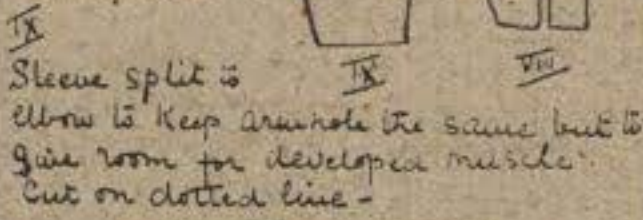 IX
IX VIII
Sleeve split to
elbow to keep armhole the same but to
give room for developed muscle.
Cut on dotted line -